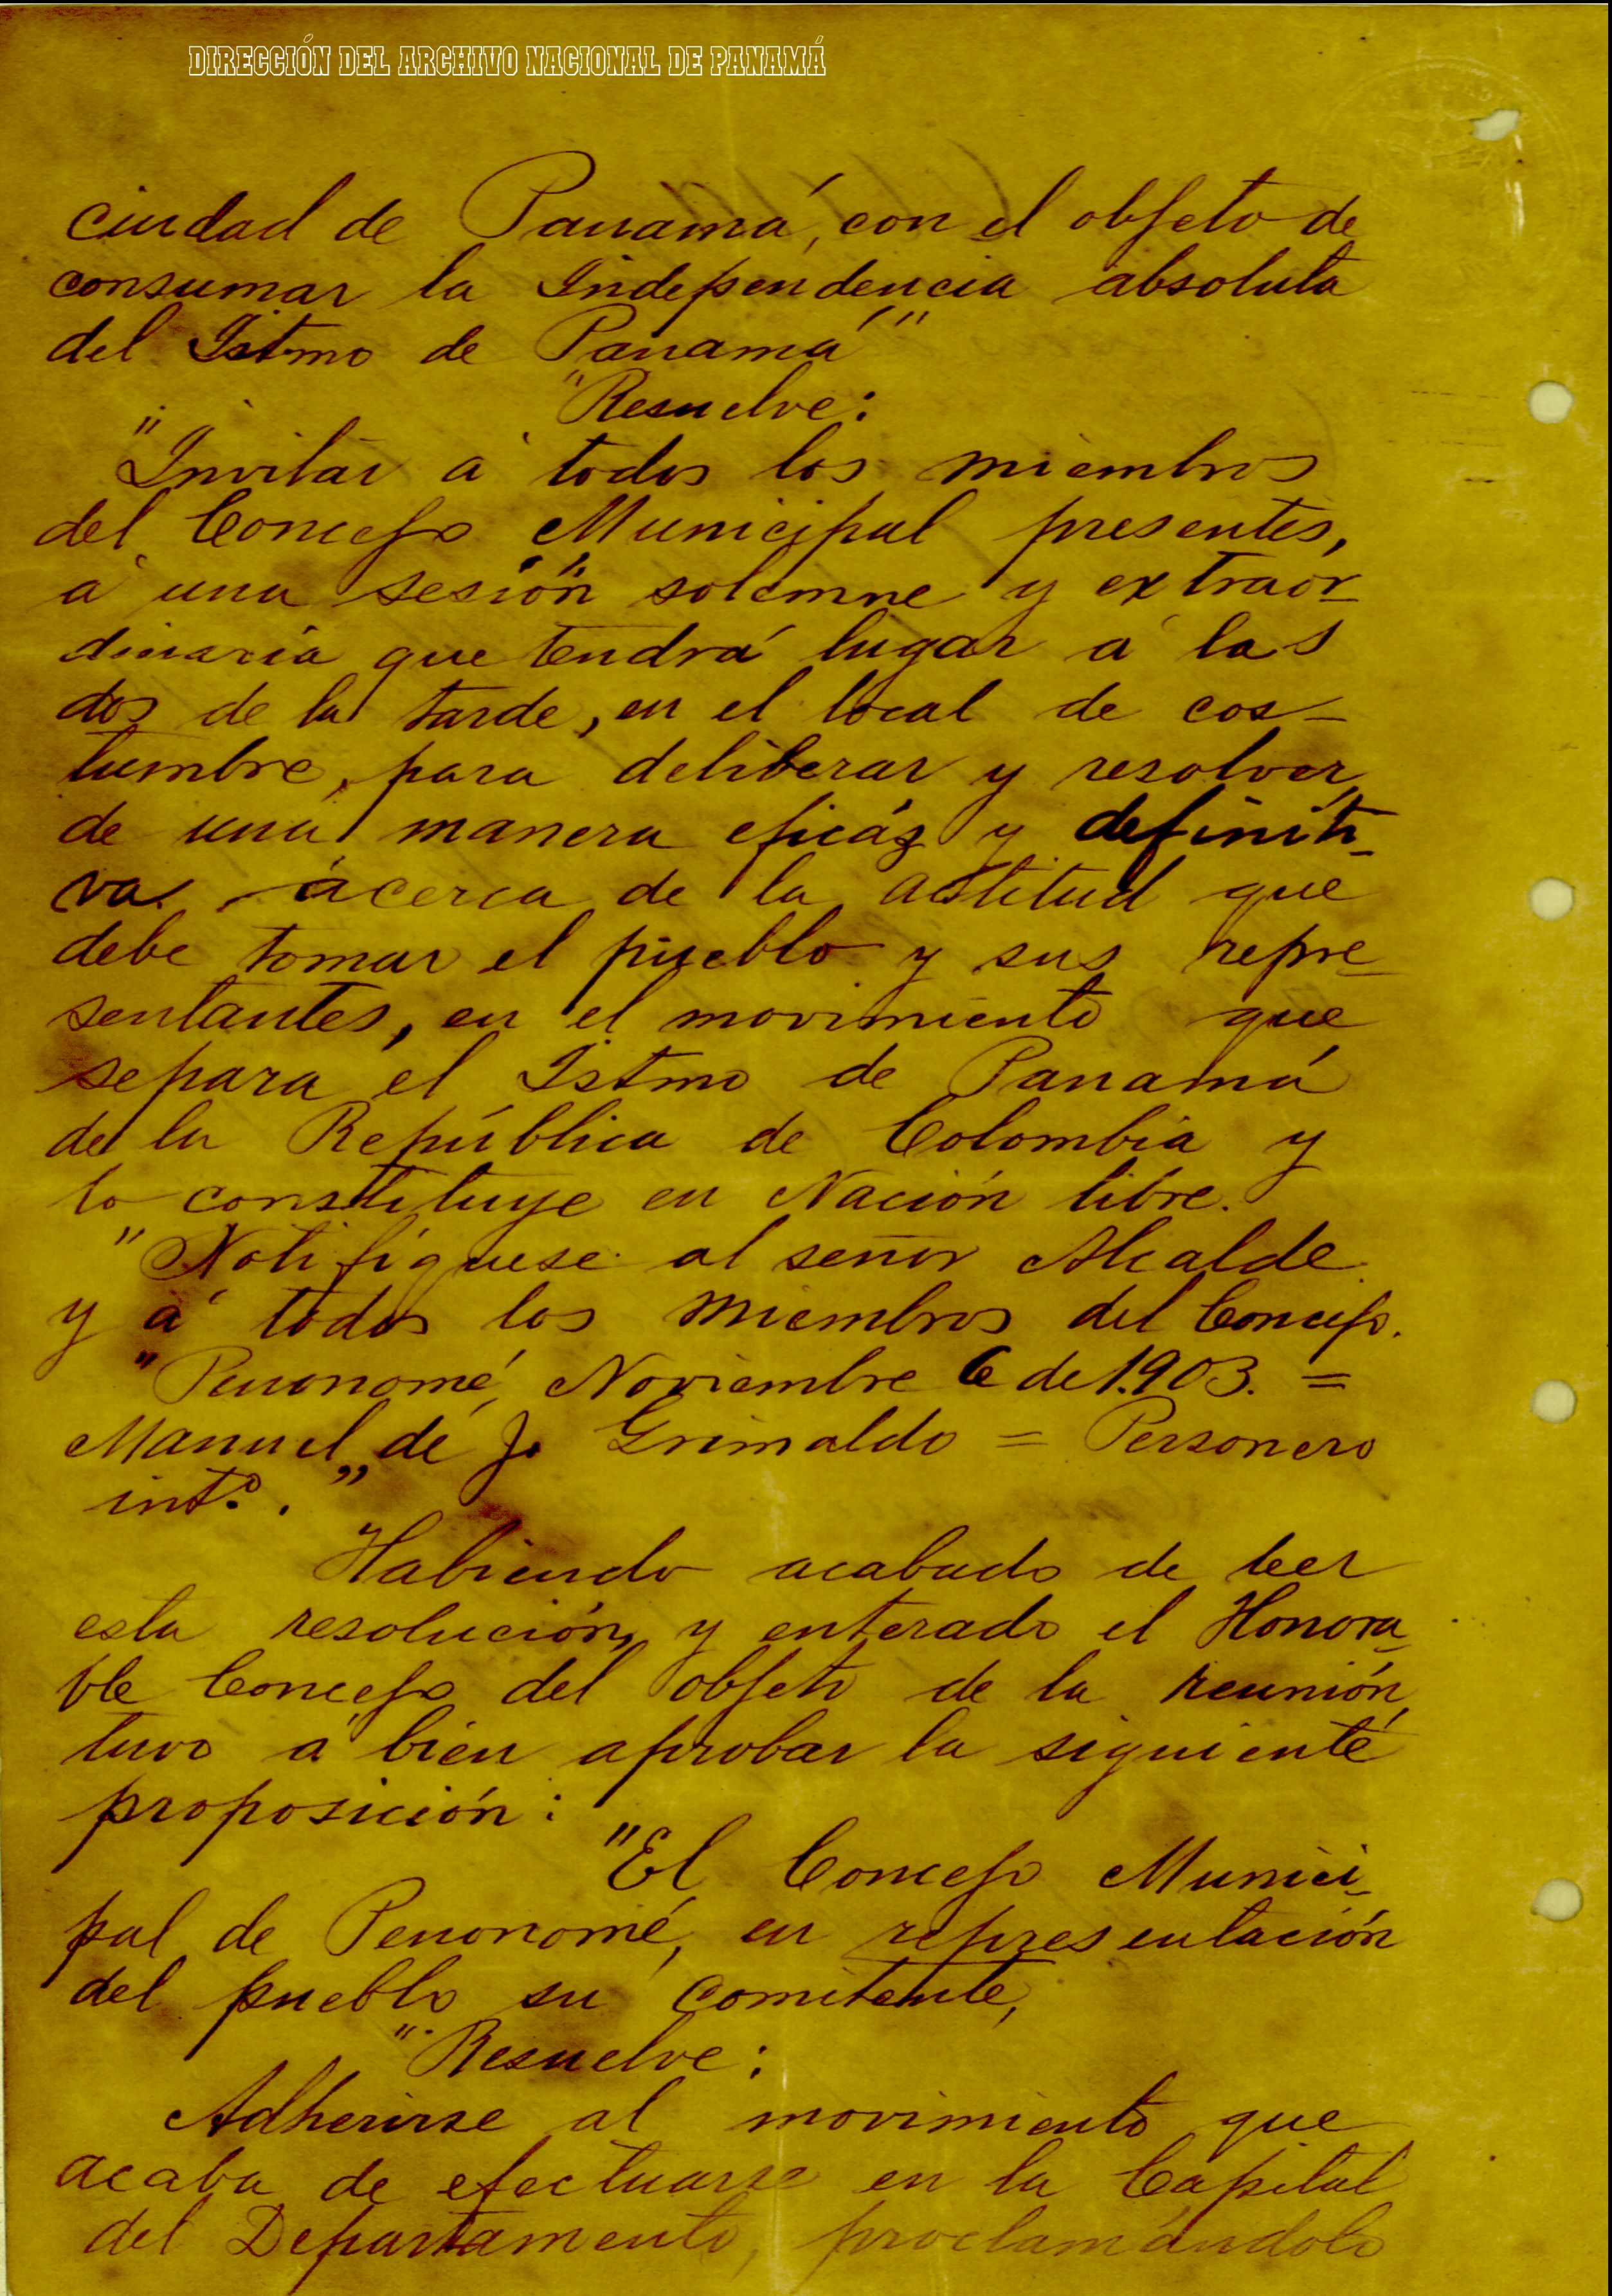 DIRECCIÓN DEL ARCHIVO NACIONAL DE PANAMÁ
ciudad de Panamá, con el objeto de
consumar la Independencia absoluta
del Istmo de Panamá"
"Resuelve:
"Invitar á todos los miembros
del Concejo Municipal presentes,
á una sesión solemne y extraor-
dinaria que tendrá lugar á las
dos de la tarde, en el local de cos-
tumbre, para deliberar y resolver
de una manera eficáz y definiti-
va acerca de la actitud que
debe tomar el pueblo y sus repre-
sentantes, en el movimiento que
separa el Istmo de Panamá
de la República de Colombia y
lo constituye en Nación libre.
"Notifíquese al señor Alcalde
y á todos los miembros del Concejo.
"Penonomé, Noviembre 6 de 1.903. =
Manuel de J. Grimaldo = Personero
intº."
Habiendo acabado de leer
esta resolución, y enterado el Honora-
ble Concejo del objeto de la reunión,
tuvo á bien aprobar la siguiente
proposición:
"El Concejo Munici-
pal de Penonomé, en representación
del pueblo su comitente,
"Resuelve:
Adherirse al movimiento que
acaba de efectuarse en la Capital
del Departamento, proclamándolo